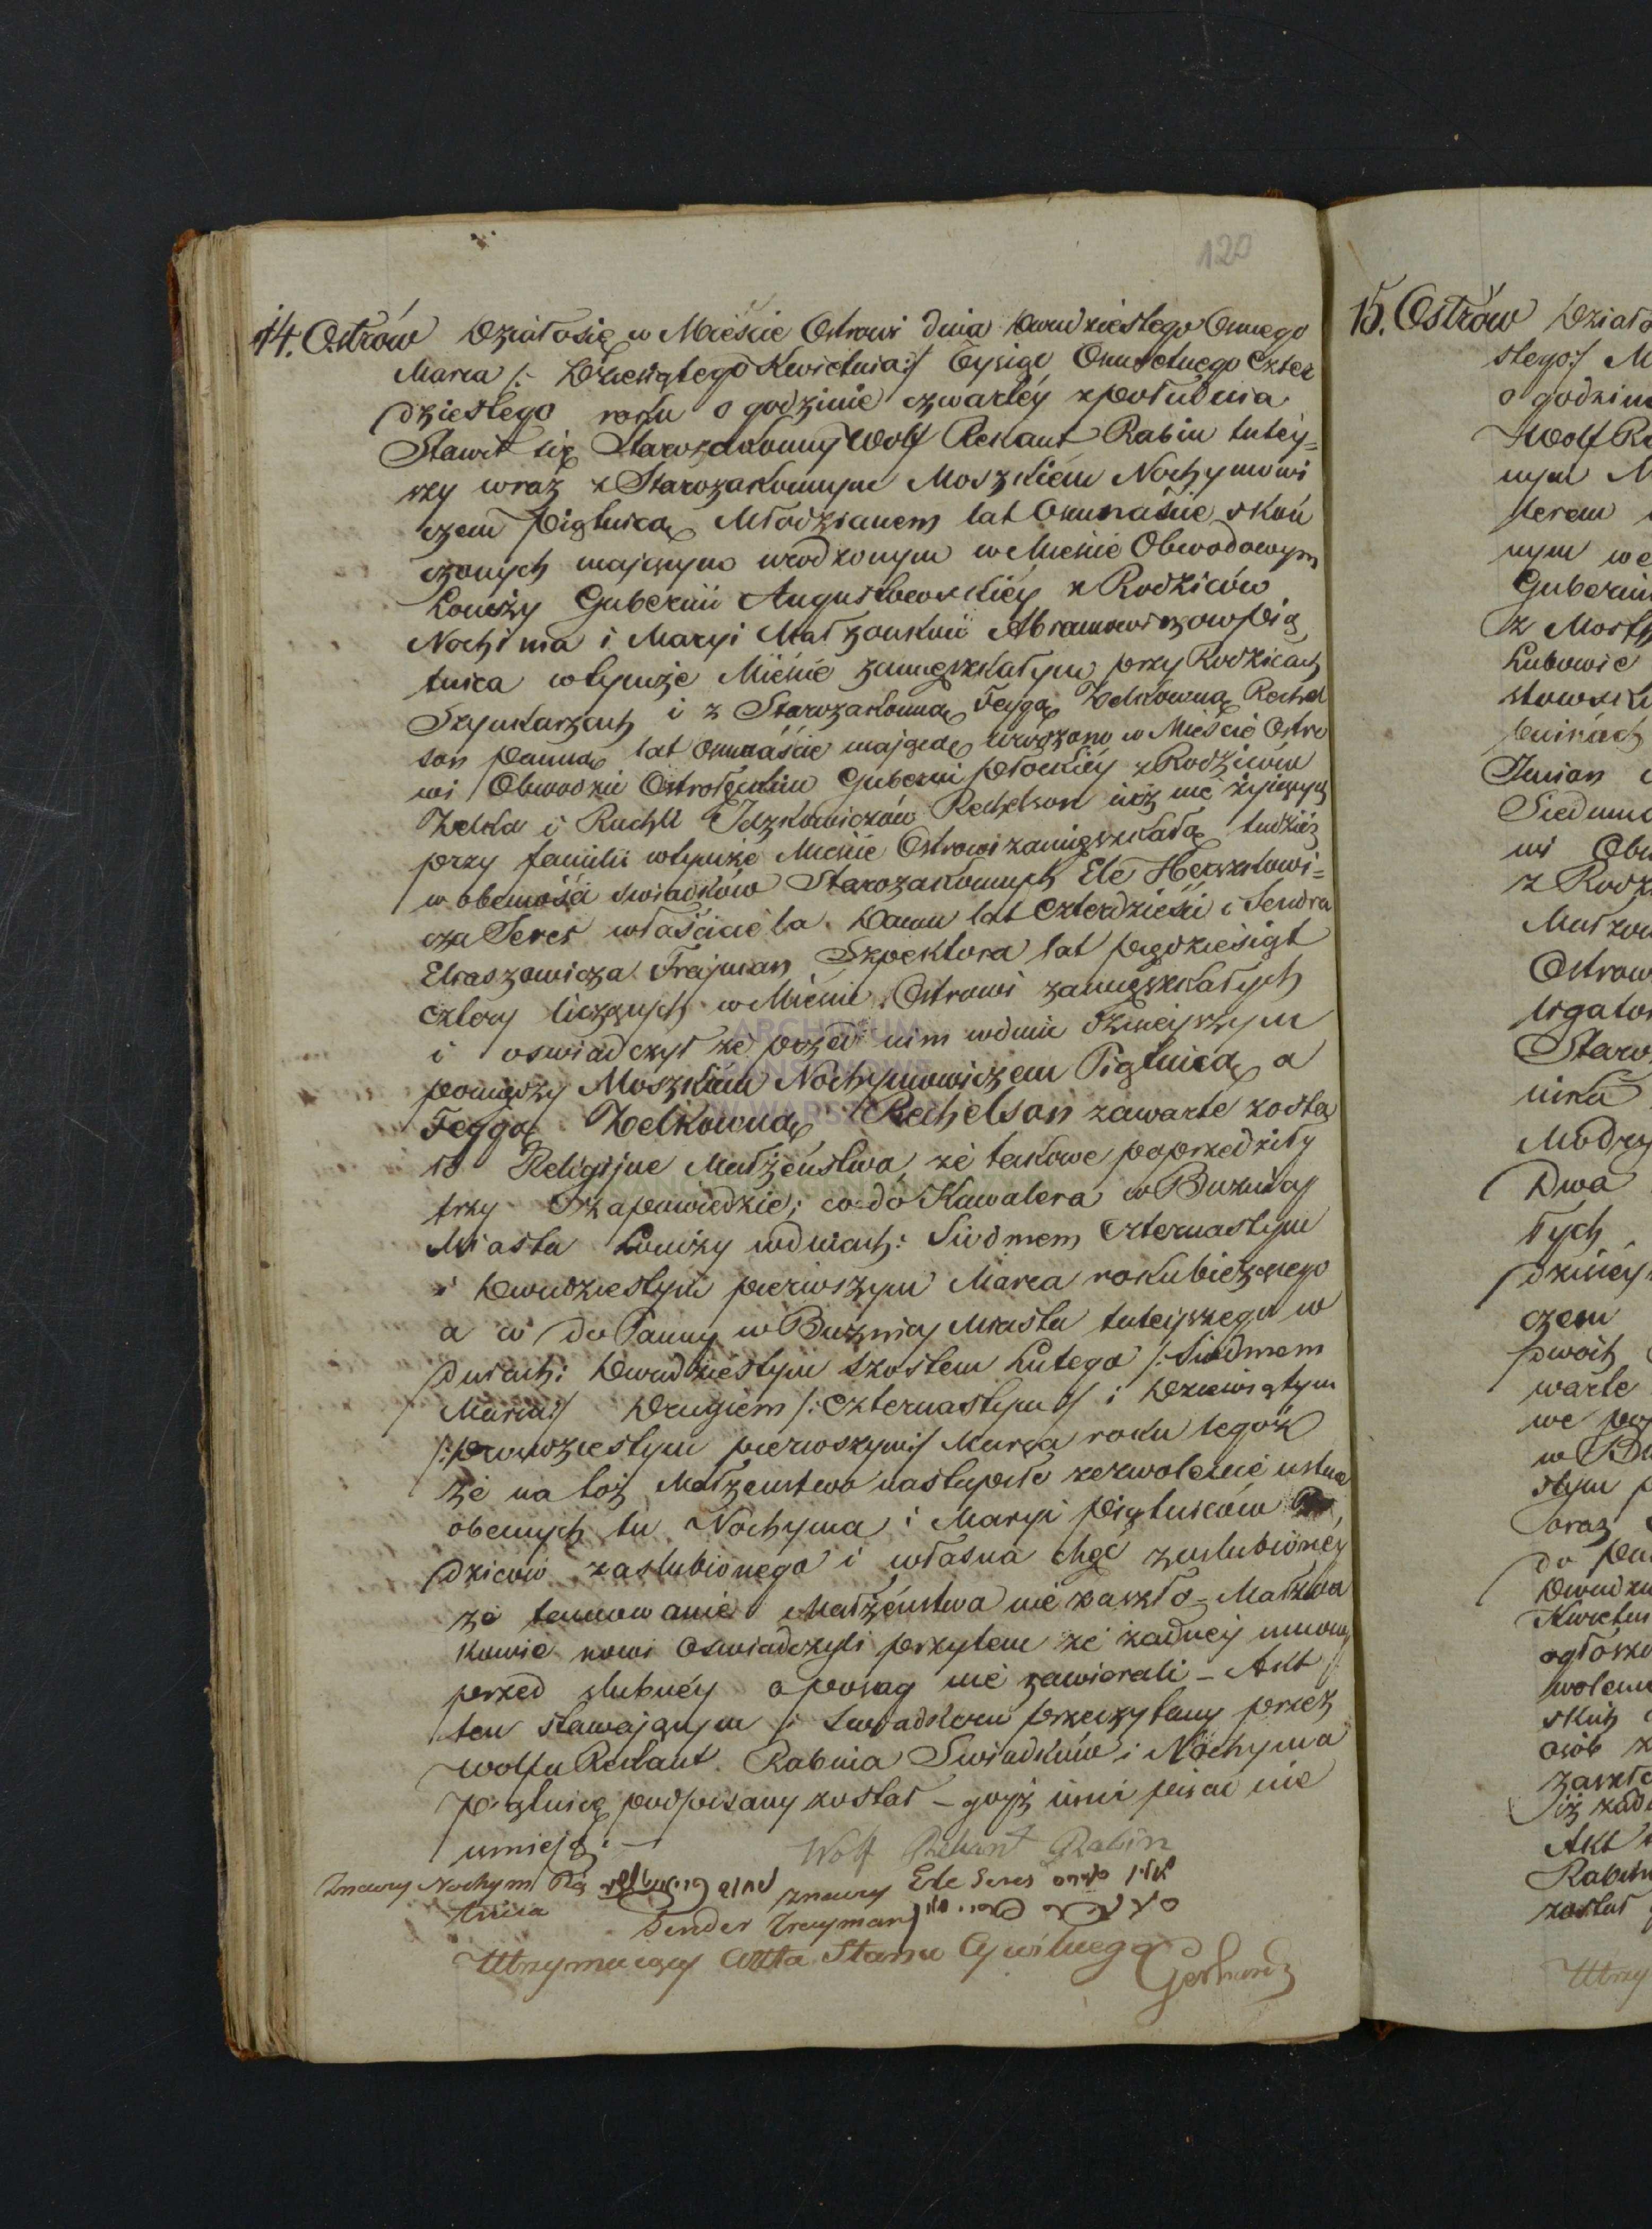 120
14. Ostrów Działo się w Mieście Ostrowi dnia dwudziestego Osmego
Marca /:- Dziewiątego Kwietnia:/ Tysiąc Osmsetnego Czter
dziestego roku o godzinie czwartéy z południa
Stawił się Starozakonny Wolf Rekant Rabin tutéy=
szy wraz z Starozakonnym Moszkiem Nochymowi
czem Piątnicą Młodzianem lat Osmnaście skoń
czonych mającym urodzonym w Mieście Obwodowym
Łomży Gubernii Augustowskiéy z Rodziców
Nochima i Maryi Małżonków Abramowiczow Pią
tnica w tymże Mieście zamięszkałym przy Rodzicach
Szynkarzach i z Starozakonną Feygą Zelkowną Rechel
son Panną lat Osmnaście mającą urodzoną w Mieście Ostro
wi Obwodzie Ostrołęckim Gubernii Płockiéy z Rodziców
Zelka i Ruchli Jdzkowiczów Rechelson już nie żyjących
przy familii w tymże Mieście Ostrowi zamięszkałą tudzież
w obecności swiadków Starozakonnych Ele Herszkowi=
cza Seres właściciela Domu lat Czterdzieści i Sendra
Eliaszowicza Frejman Szpektora lat pięćdziesiąt
cztery liczących w Mieście Ostrowi zamięszkałych
i oswiadczył że przed nim w dniu dzisiejszym
pomiędzy Moszkiem Nochymowiczem Piątnicą a
Feygą Zelkowną Rechelson zawarte zosta
ło Religijne Małżeństwo, że takowe poprzedziły
trzy Zapowiedzie; co do Kawalera w Buznicy
Miasta Łomży w dniach: Siódmem Czternastym
i Dwudziestym pierwszym Marca roku bieżącego
a co do Panny w Buznicy Miasta tuteiyszego w
dniach: Dwudziestym szostem Lutego /: Siódmem
Marca:/ Drugiem /: Czternastym :/ i Dziewiątym
/: Dwudziestym pierwszym:/ Marca roku tegoż
że na toż Małżeństwo nastąpiło zezwolenie ustne
obecnych tu Nochyma i Maryi Piątniców Ro
dziców zaslubionego i własna chęć zaslubionéy
że tamowanie Małżeństwa nie zaszło_ Małżon
kowie nowi Oswiadczyli przytem że żadnéy umowy
przed slubnéy o posag nie zawierali _ Akt
ten stawającym i Swiadkom przeczytany przez
Wolfa Rekant Rabina Swiadków i Nochyma
Piątnicę podpisany został _ gdyż inni pisać nie
umieją: —
Wolf Rekant Rabin
Znaczy Nochym Pią
tnica
znaczy Ele Seres
Sender Freyman
Utrzymuiący Akta Stanu Cywilnego
15. Ostrów Działo
stego:/ M
o godzin
Wolf Re
nym M
terem
nym w
Guberni
z Mosz
Lubowie
stowski
Siedmn
wi Obw
z Rodz
Małżon
Ostrow
Staroz
nika
Modrz
Dwa
łych
dzisiey
czem
dwóch
warte
we po
w Bu
stym p
oraz
do Pan
Dwudz
Kwietn
ogłosz
wolenie
skich
osób z
zaszło
iż żad
Akt
Rabin
został
Utrzy